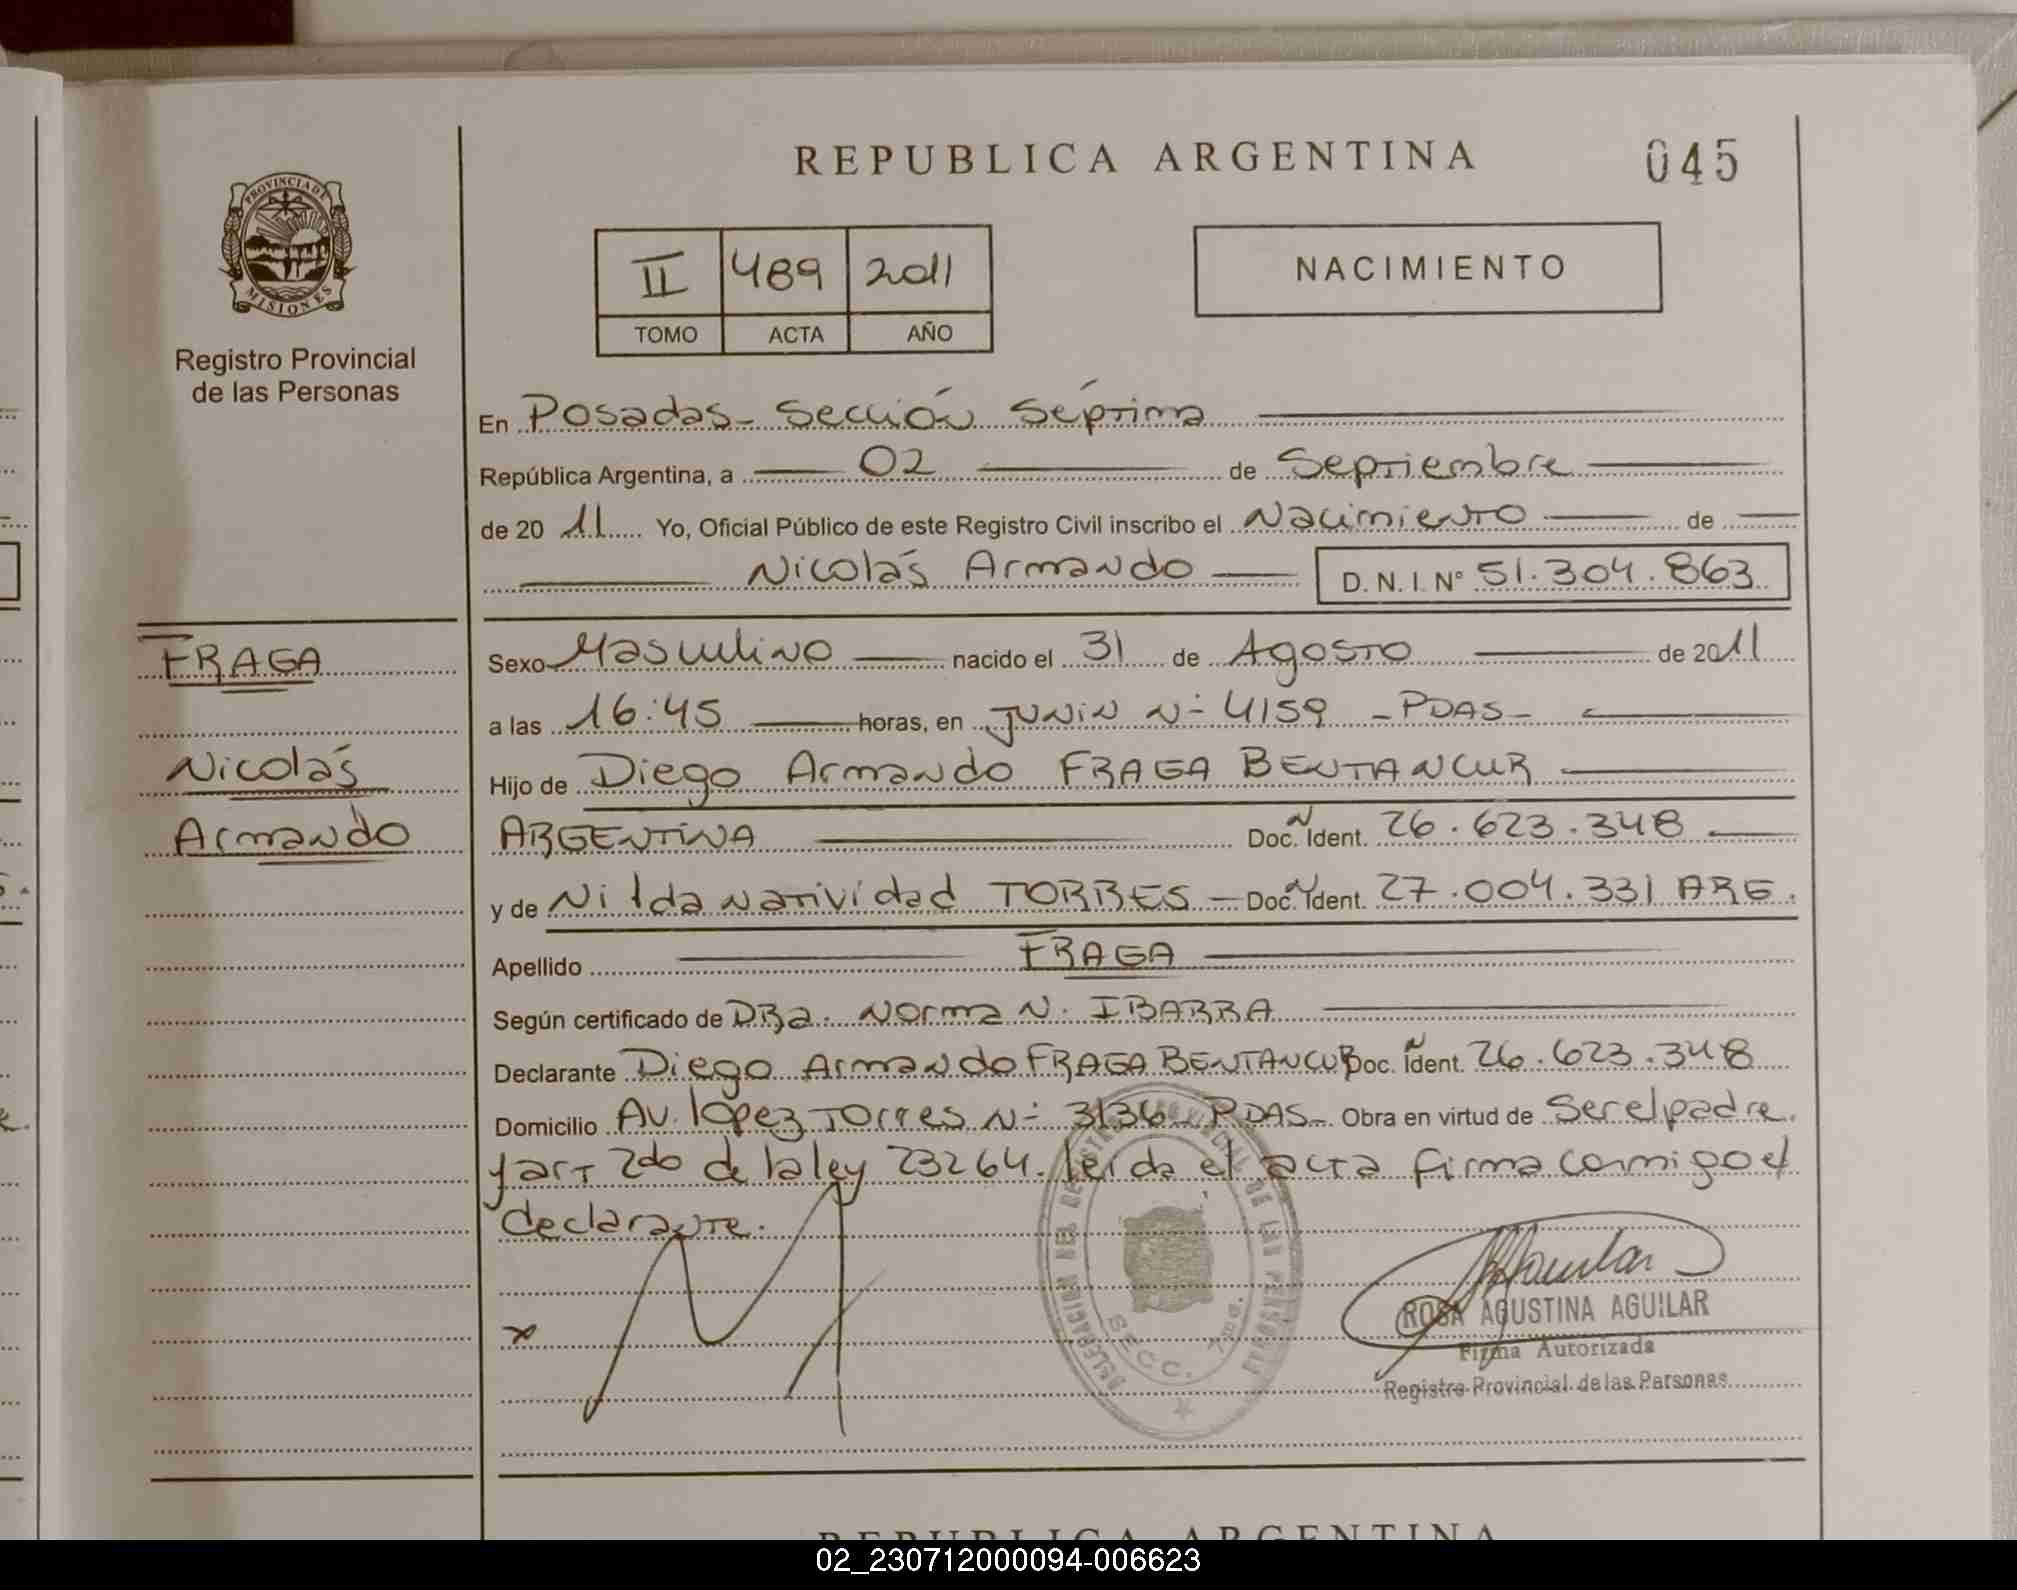 REPUBLICA ARGENTINA
045
PROVINCIA DE
MISIONES
Registro Provincial
de las Personas
II 489 2011
TOMO ACTA AÑO
NACIMIENTO
En Posadas - Sección Séptima
República Argentina, a 02 de Septiembre
de 20 11 Yo, Oficial Público de este Registro Civil inscribo el Nacimiento de
Nicolás Armando D. N. I. N° 51.304.863
FRAGA
Nicolás
Armando
Sexo Masculino nacido el 31 de Agosto de 2011
a las 16:45 horas, en Junin N- 4159 - PDAS -
Hijo de Diego Armando FRAGA BENTANCUR
ARGENTINA Doc. Ident. 26.623.348
y de Nilda Natividad TORRES - Doc. Ident. 27.004.331 ARG.
Apellido FRAGA
Según certificado de DRa. Norma N. IBARRA
Declarante Diego Armando FRAGA BENTANCUR Doc. Ident. 26.623.348
Domicilio AV. lopez Torres N- 3136 - PDAS - Obra en virtud de Ser el padre.
y art 2do de la ley 23264. leida el acta firma conmigo el
declarante.
DELEGACION DEL REGISTRO PROVINCIAL DE LAS PERSONAS
SECC. 7ma.
x
ROSA AGUSTINA AGUILAR
Firma Autorizada
Registro Provincial de las Personas
REPUBLICA ARGENTINA
02_230712000094-006623